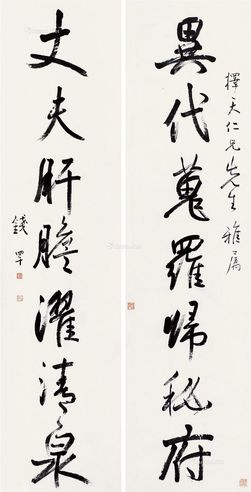 擇天仁兄先生雅屬
異代蒐羅歸秘府
丈夫肝膽濯清泉
錢罕